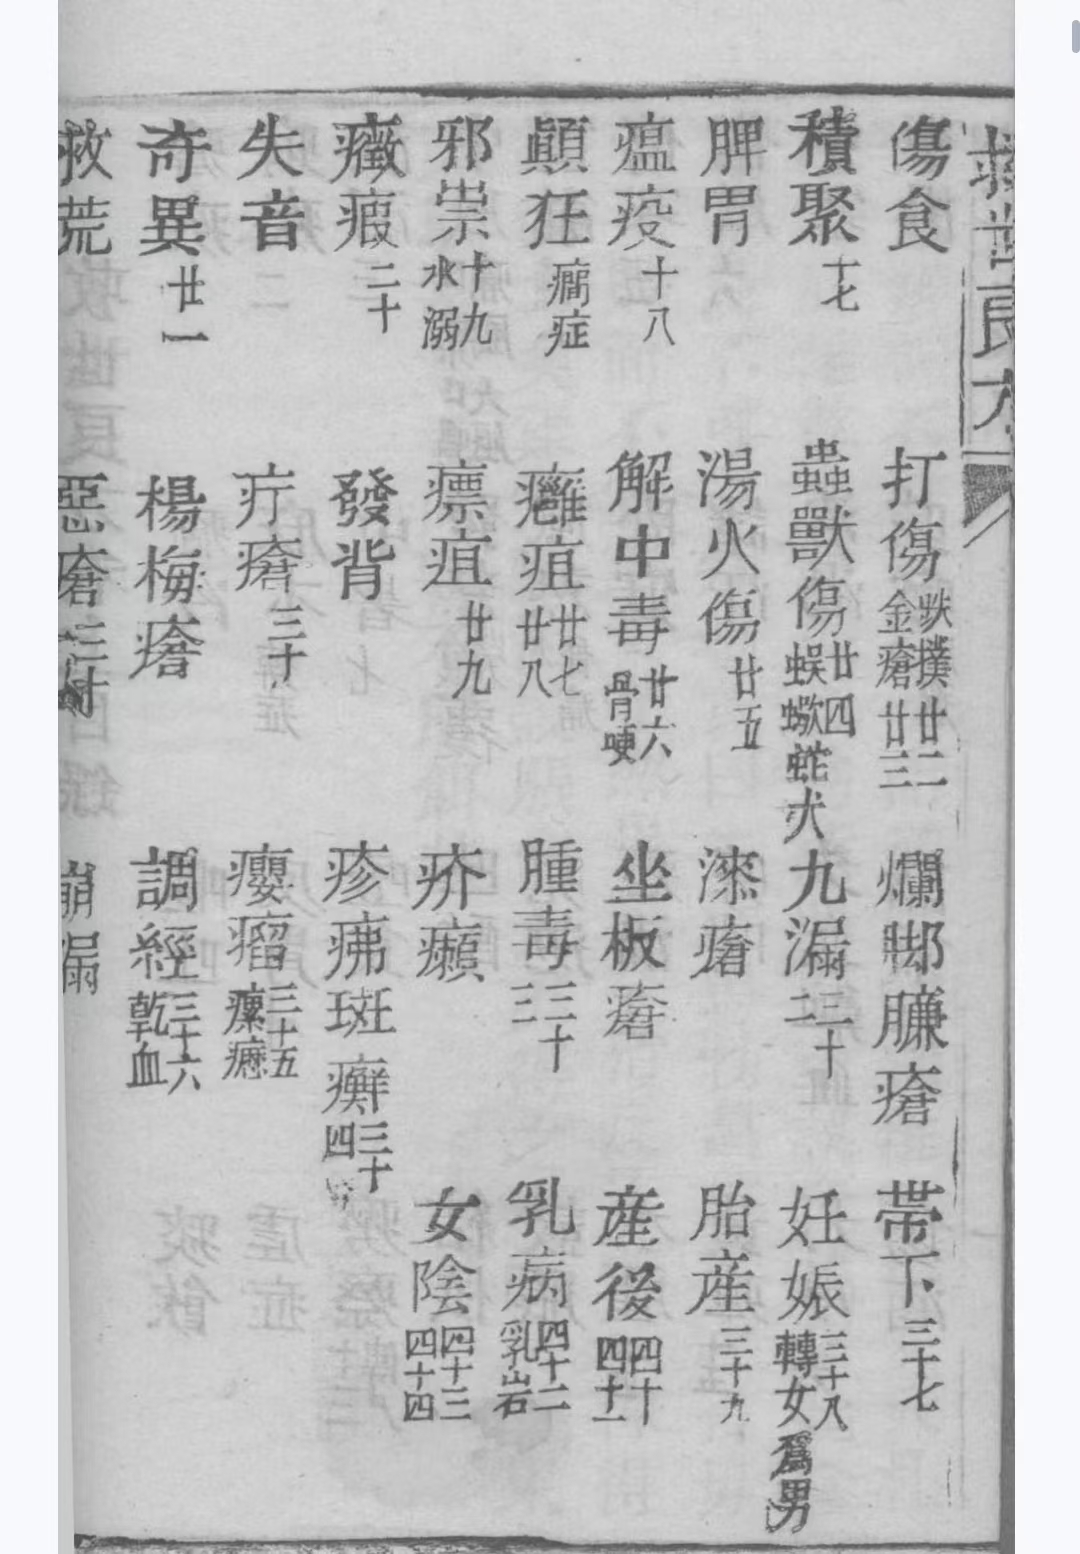 救世良方
傷食　打傷跌撲廿二金瘡廿三　爛脚臁瘡　帶下三十七
積聚十七　蟲獸傷廿四蜈蠍蛇犬　九漏三十二　妊娠三十八轉女爲男
脾胃　湯火傷廿五　漆瘡　胎産三十九
瘟疫十八　解中毒廿六骨哽　坐板瘡　産後四十四十一
顚狂癇症　癰疽廿七廿八　腫毒三十三　乳病四十二乳岩
邪祟十九水溺　瘭疽廿九　疥癩　女陰四十三四十四
癥瘕二十　發背　疹疿斑癬三十四
失音　疔瘡三十　癭瘤三十五瘰癧
奇異廿一　楊梅瘡　調經三十六乾血
救荒　惡瘡　崩漏